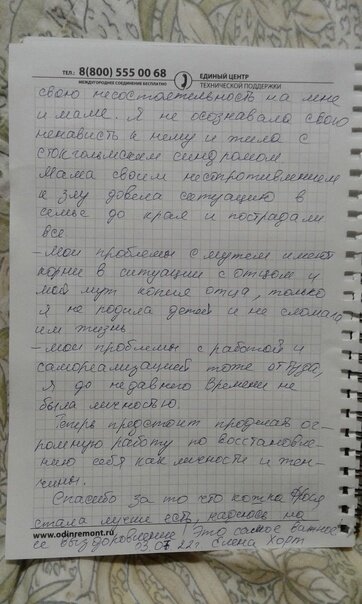 ТЕЛ.: 8(800) 555 00 68
МЕЖДУГОРОДНЕЕ СОЕДИНЕНИЕ БЕСПЛАТНО
ЕДИНЫЙ ЦЕНТР
ТЕХНИЧЕСКОЙ ПОДДЕРЖКИ
свою несостоятельность на мне
и маме. Я не осознавала свою
ненависть к нему и жила с
стокгольмским синдромом.
Мама своим несопротивлением
к злу довела ситуацию в
семье до края и пострадали
все.
– Мои проблемы с мужем имеют
корни в ситуации с отцом и
мой муж копия отца, только
я не родила детей и не сломала
им жизнь.
– Мои проблемы с работой и
самореализацией тоже оттуда,
я до недавнего времени не
была личностью.
Теперь предстоит проделать ог-
ромную работу по восстановле-
нию себя как личности и жен-
щины.
Спасибо за то что кошка Фрося
стала лучше есть, надеюсь на
www.odinremont.ru
ее выздоровление! Это самое важное
23.07 22г. Елена Хорт